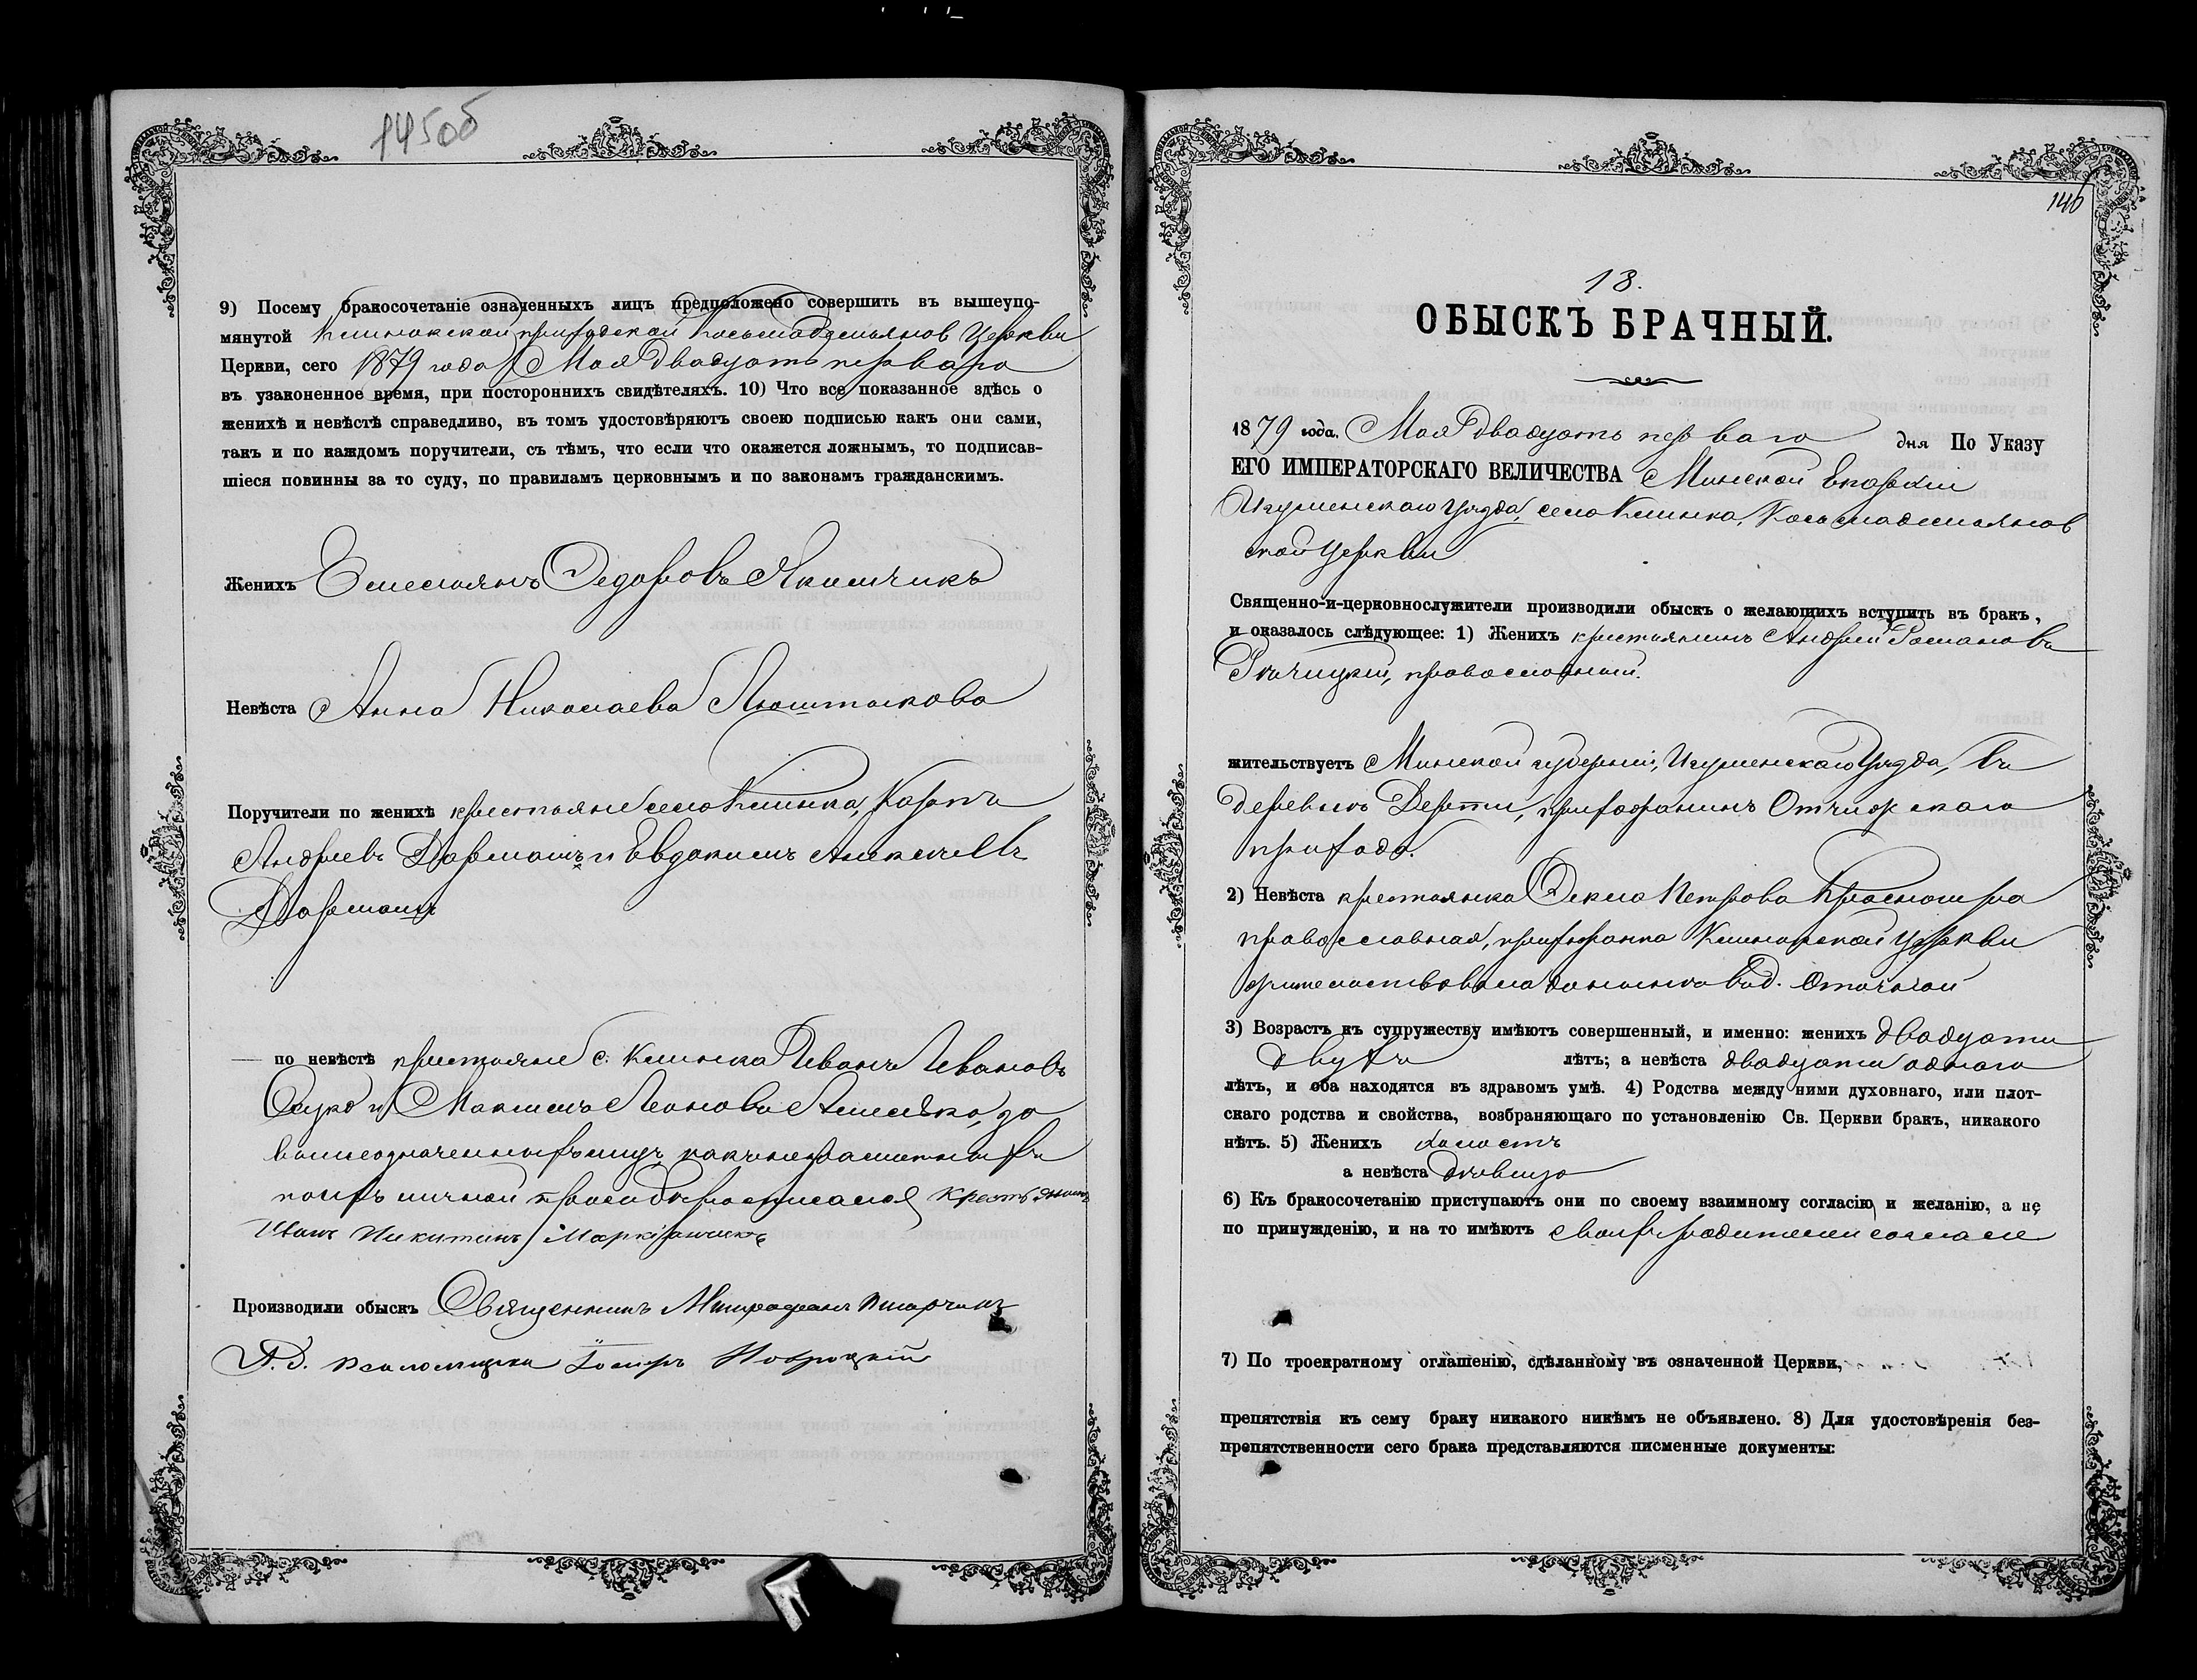 145об
9) Посему бракосочетаніе означенныхъ лицъ предположено совершить въ вышеупо-
мянутой Клинокской приходской Косьмодемьянов Церкви
Церкви, сего 1879 года Мая двадцать перваго
въ узаконенное время, при постороннихъ свидѣтеляхъ. 10) Что все показанное здѣсь о
женихѣ и невѣстѣ справедливо, въ томъ удостовѣряютъ своею подписью какъ они сами,
такъ и по каждомъ поручители, съ тѣмъ, что если что окажется ложнымъ, то подписав-
шіеся повинны за то суду, по правиламъ церковнымъ и по законамъ гражданскимъ.
Женихъ Емельянъ Ѳедоровъ Якимчикъ
Невѣста Анна Николаева
Поручители по женихѣ крестьяне села Клинка, Карпъ
Андреевъ и Евдокимъ Алексѣевъ
— по невѣстѣ крестьяне с. Клинка Иванъ Ивановъ
и Максимъ за
вышеозначенныхъ лицъ какъ неграмотныхъ
по ихъ личной просьбѣ росписался крестьянинъ
Иванъ Никитинъ
Производили обыскъ Священникъ
И. д. псаломщика
146
18.
ОБЫСКЪ БРАЧНЫЙ.
1879 года. Мая двадцать перваго дня По Указу
ЕГО ИМПЕРАТОРСКАГО ВЕЛИЧЕСТВА Минской Епархіи
Игуменскаго уѣзда, села Клинка, Косьмадемьянов
ской церкви
Священно-и-церковнослужители производили обыскъ о желающихъ вступить въ бракъ,
и оказалось слѣдующее: 1) Женихъ крестьянинъ Андрей Романовъ
Рѣчицкій, православный.
жительствуетъ Минской губерніи, Игуменскаго уѣзда, въ
деревнѣ прихожанинъ
прихода.
2) Невѣста крестьянка Ѳекла Петрова
православная, прихожанка Клинокской церкви
жительствовала
3) Возрастъ къ супружеству имѣютъ совершенный, и именно: женихъ двадцати
двухъ лѣтъ; а невѣста двадцати одного
лѣтъ, и оба находятся въ здравомъ умѣ. 4) Родства между ними духовнаго, или плот-
скаго родства и свойства, возбраняющаго по установленію Св. Церкви бракъ, никакого
нѣтъ. 5) Женихъ холостъ
а невѣста дѣвица
6) Къ бракосочетанію приступаютъ они по своему взаимному согласію и желанію, а не
по принужденію, и на то имѣютъ своихъ родителей согласіе
7) По троекратному оглашенію, сдѣланному въ означенной Церкви,
препятствія къ сему браку никакого никѣмъ не объявлено. 8) Для удостовѣренія без-
препятственности сего брака представляются писменные документы: